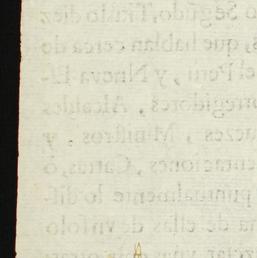 o Segũdo, Titulo diez
s, que hablan cerca de
el Peru, y Nueva Es-
orregidores, Alcaldes
uezes, Ministros, y
entaciones, Cartas, ò
puntualmente lo dis-
na de ellas de vn solo